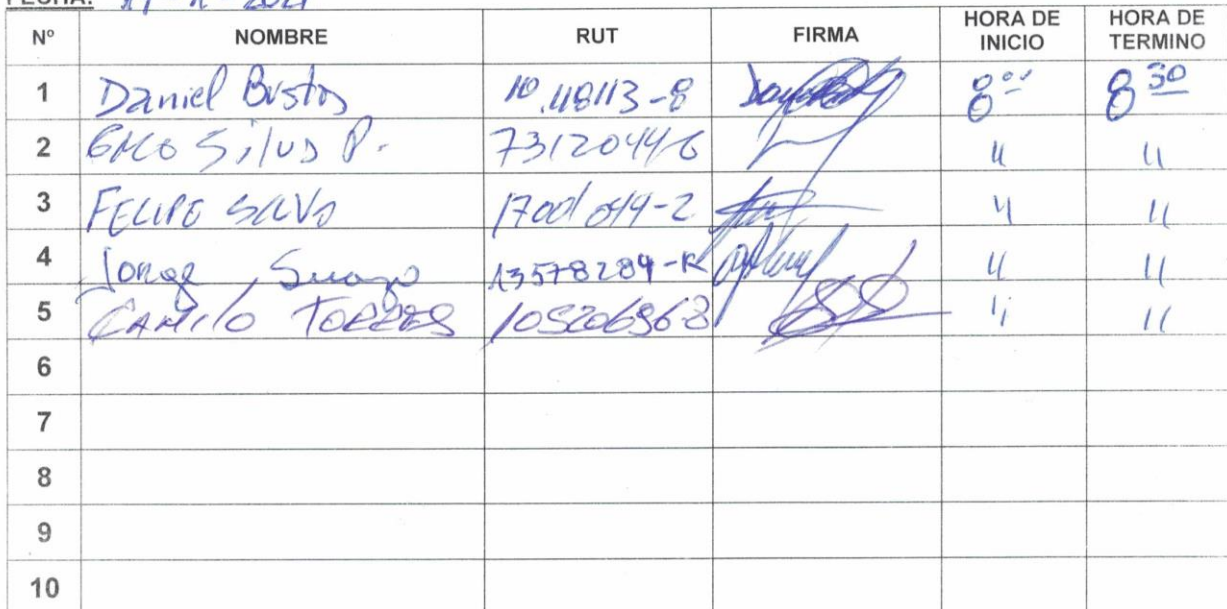 FECHA: 2021
Nº NOMBRE RUT FIRMA HORA DE INICIO HORA DE TERMINO
1 Daniel Bustos 10.48113-8 8 00 8 30
2 Silva P. 7312044-6 " "
3 FELIPE SALVO 17001 " "
4 Jorge Suazo 13578289-K " "
5 CAMILO TORRES 10520696-3 " "
6
7
8
9
10